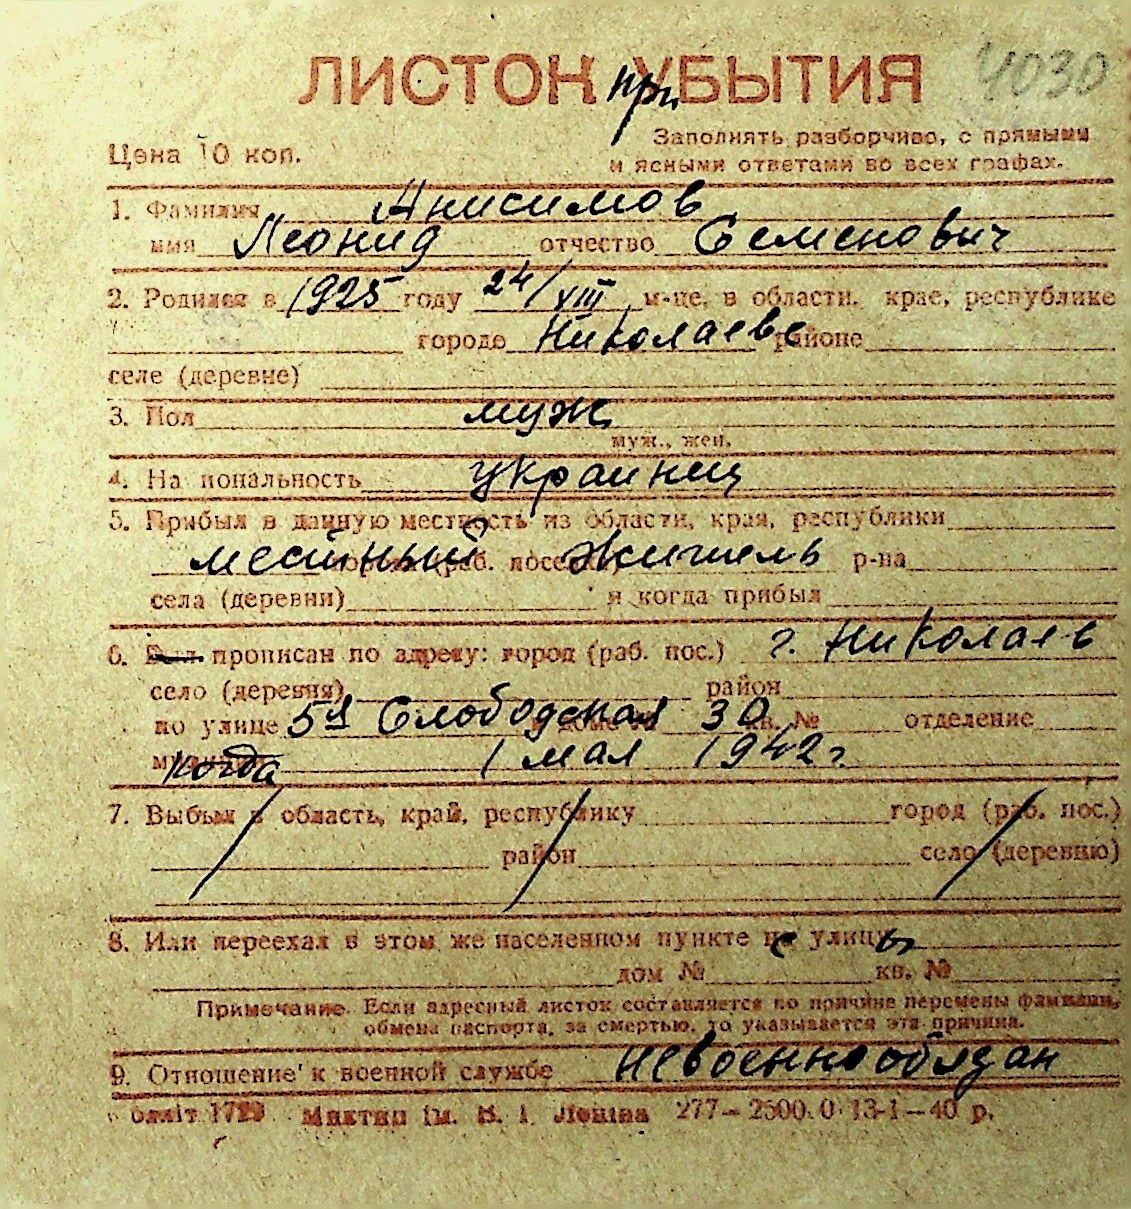 4030
ЛИСТОК при УБЫТИЯ
Цена 10 коп.
Заполнять разборчиво, с прямыми
и ясными ответами во всех графах.
1. Фамилия Анисимов
имя Леонид отчество Семенович
2. Родился в 1925 году 24/VIII м-це, в области, крае, республике
городе Николаеве районе
селе (деревне)
3. Пол муж
муж., жен.
4. Национальность украинец
5. Прибыл в данную местность из области, края, республики
местный житель р-на
села (деревни) и когда прибыл
6. Был прописан по адресу: город (раб. пос.) г. Николаев
село (деревня) район
по улице 5я Слободская 30 кв. № отделение
когда 1 мая 1942 г.
7. Выбыл в область, край, республику город (раб. пос.)
район село (деревню)
8. Или переехал в этом же населенном пункте с улицы
дом № кв. №
Примечание. Если адресный листок составляется по причине перемены фамилии,
обмена паспорта, за смертью, то указывается эта причина.
9. Отношение к военной службе невоеннообязан
Миктип ім. В. І. Леніна 277—2500.0 13-1—40 р.